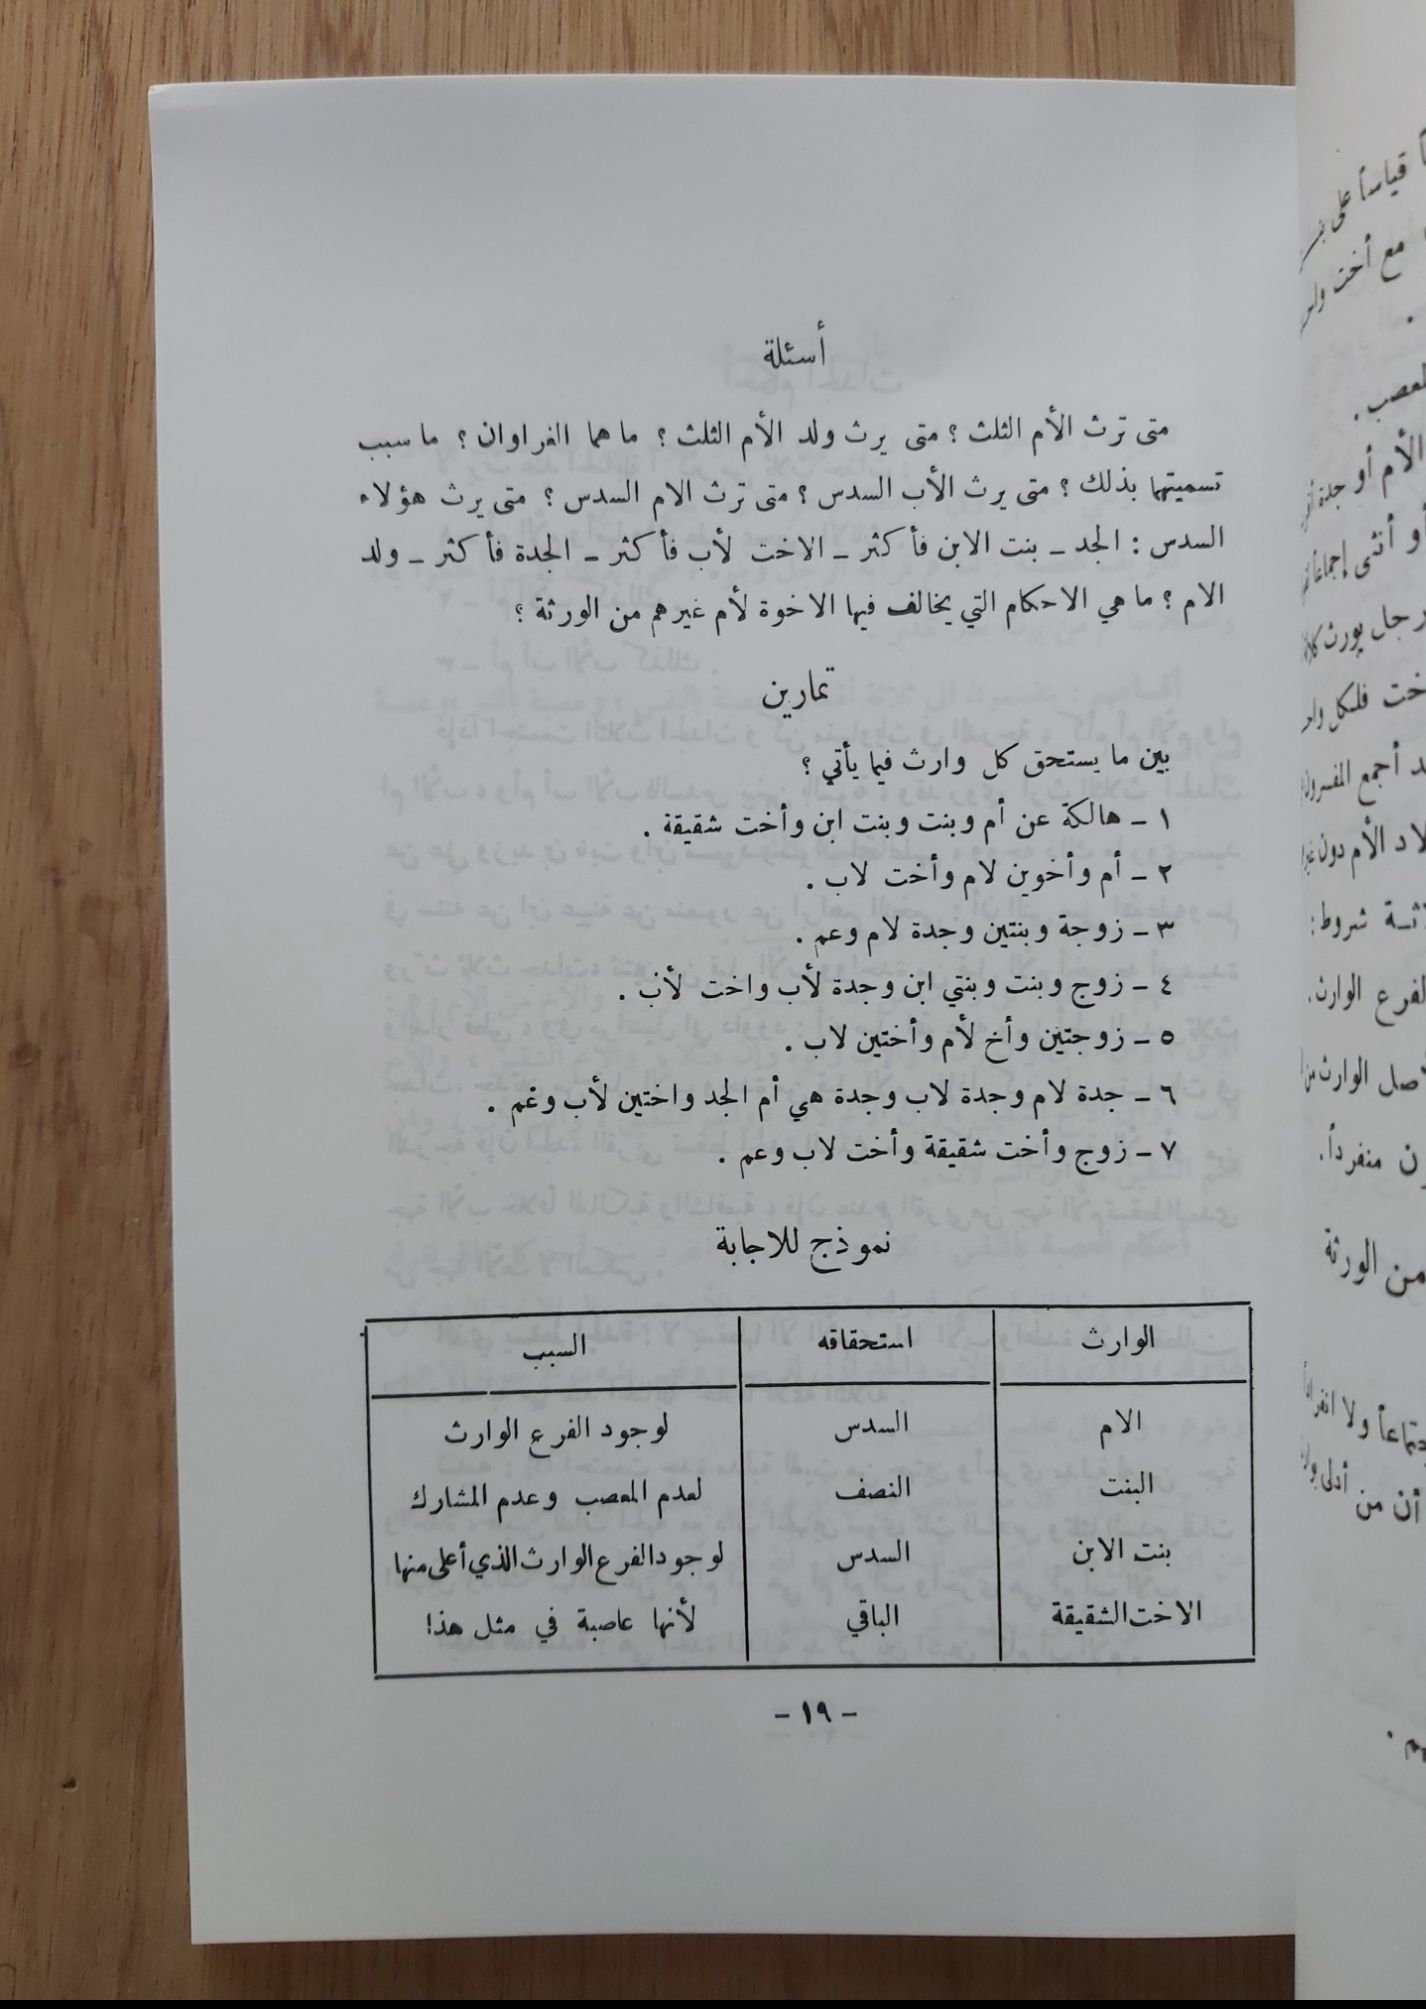 أسئلة
متى ترث الأم الثلث ؟ متى يرث ولد الأم الثلث ؟ ما هما الغراوان ؟ ما سبب
تسميتهما بذلك ؟ متى يرث الأب السدس ؟ متى ترث الام السدس ؟ متى يرث هؤلاء
السدس : الجد ــ بنت الابن فأكثر ــ الاخت لأب فأكثر ــ الجدة فأكثر ــ ولد
الام ؟ ما هي الاحكام التي يخالف فيها الاخوة لأم غيرهم من الورثة ؟
تمارين
بين ما يستحق كل وارث فيما يأتي ؟
١ ــ هالكة عن أم وبنت وبنت ابن وأخت شقيقة .
٢ ــ أم وأخوين لام وأخت لاب .
٣ ــ زوجة وبنتين وجدة لام وعم .
٤ ــ زوج وبنت وبنتي ابن وجدة لأب واخت لأب .
٥ ــ زوجتين وأخ لأم وأختين لاب .
٦ ــ جدة لام وجدة لاب وجدة هي أم الجد واختين لأب وعم .
٧ ــ زوج وأخت شقيقة وأخت لاب وعم .
نموذج للاجابة
الوارث استحقاقه السبب
الام السدس لوجود الفرع الوارث
البنت النصف لعدم المعصب وعدم المشارك
بنت الابن السدس لوجود الفرع الوارث الذي أعلى منها
الاخت الشقيقة الباقي لأنها عاصبة في مثل هذا
- ١٩ -
قياساً على
مع أخت
الأم أو جدة
أو أنثى إجماعاً
رجل يورث
فلكل
أجمع المفسرون
الأم دون
شروط :
الفرع الوارث .
الوارث من
منفرداً .
من الورثة
ولا
أن من أدلى